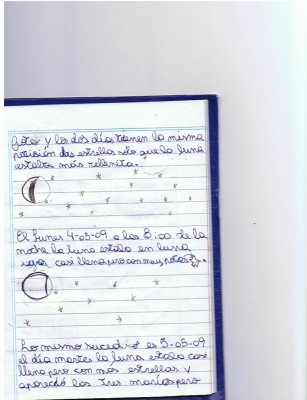 foto y los dos días tienen la misma
posición las estrellas solo que la luna
estaba más rellenita.
El lunes 4-05-09 a las 8:00 de la
noche la luna estaba en luna
casi llena pero con muy pocas
Lo mismo sucedió es 5-05-09
el día martes la luna estaba casi
llena pero con más estrellas y
apareció las Tres marías pero